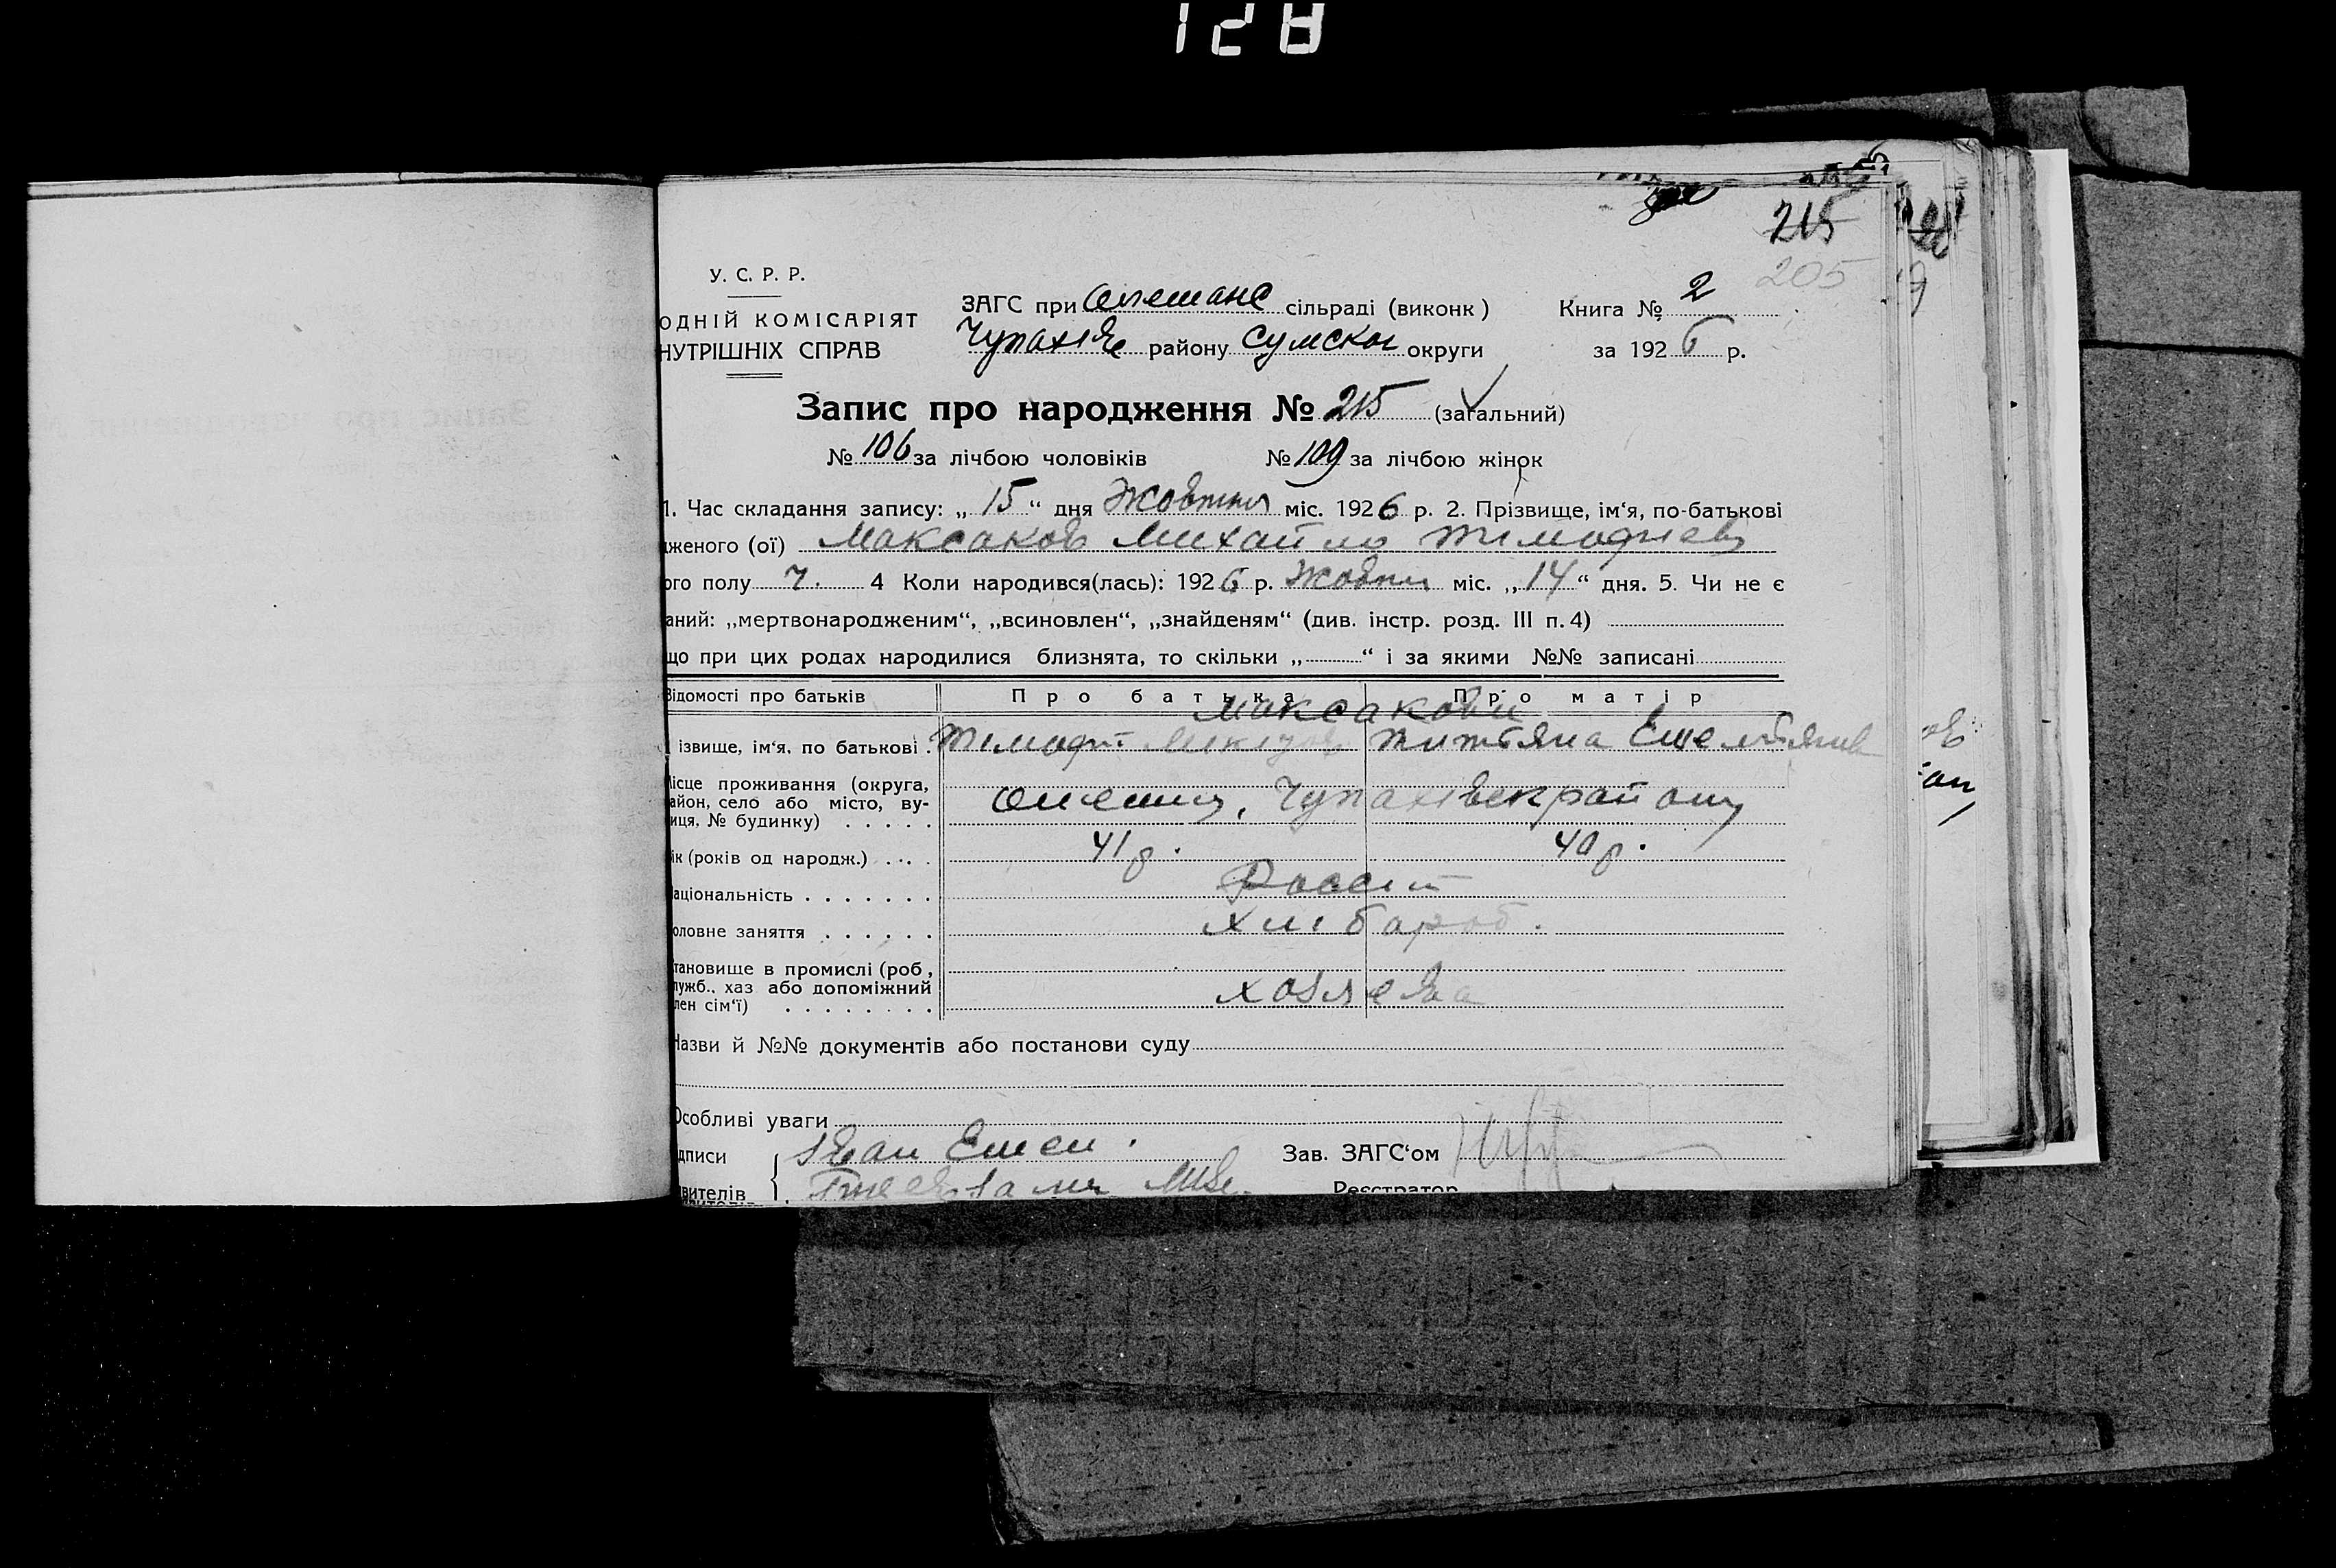 128
215
205
У. С. Р. Р.
ОДНІЙ КОМІСАРІЯТ
НУТРІШНІХ СПРАВ
ЗАГС при Олешанс сільраді (виконк)
Чупахів району Сумскої округи
Книга № 2
за 1926 р.
Запис про народження № 215 (загальний)
№ 106 за лічбою чоловіків № 109 за лічбою жінок
1. Час складання запису: „ 15 “ дня Жовтня міс. 1926 р. 2. Прізвище, ім‘я, по-батькові
женого (ої) Максаков Михайло Тімофиев
ого полу ч. 4 Коли народився(лась): 1926 р. Жовтн міс. „ 14 “ дня. 5. Чи не є
аний: „мертвонародженим“, „всиновлен“, „знайденям“ (див. інстр. розд. III п. 4)
що при цих родах народилися близнята, то скільки „ “ і за якими №№ записані
Відомості про батьків Про батька Про матір
Максакови
ізвище, ім‘я, по батькові Тімофій Титяна
Місце проживання (округа,
айон, село або місто, ву-
иця, № будинку)
Олешня, Чупахівск району
ік (років од народж.) 41 р. 40 р.
аціональність Россій
оловне заняття Хлібароб.
тановище в промислі (роб,
лужб., хаз або допоміжний
лен сім‘ї)
Хозяева
Назви й №№ документів або постанови суду
Особливі уваги
дписи Іван
вителів
Зав. ЗАГС‘ом
Реєстратор